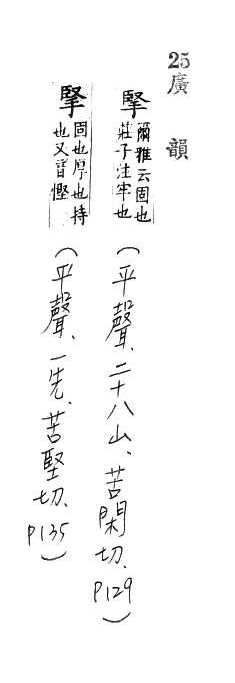 25廣韻
掔爾雅云固也莊子注牢也(平聲、二十八山、苦閑切、P129)
掔固也厚也持也又音慳(平聲、一先、苦堅切、P135)